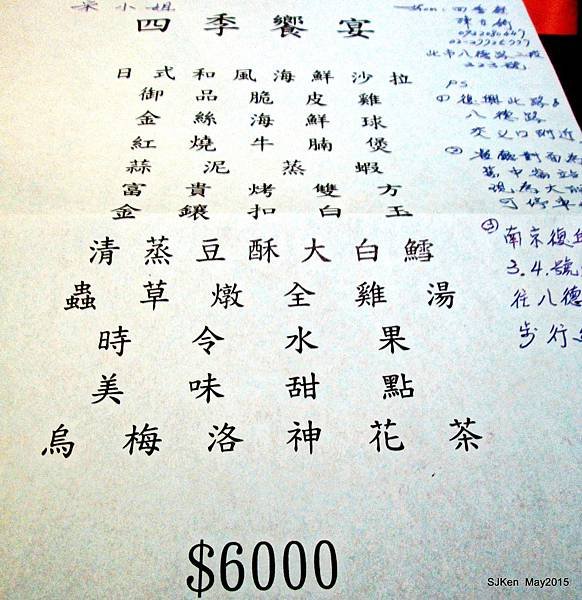 小姐
四季饗宴
日式和風海鮮沙拉
御品脆皮雞
金絲海鮮球
紅燒牛腩煲
蒜泥蒸蝦
富貴烤雙方
金鑲扣白玉
清蒸豆酥大白鱈
蟲草燉全雞湯
時令水果
美味甜點
烏梅洛神花茶
$6000
北市八德路二段
PS
① 復興北路&
八德路
交叉口附近
②
現為大
可停車
③ 南京復
3.4.號
往八德
步行
SJKen May2015